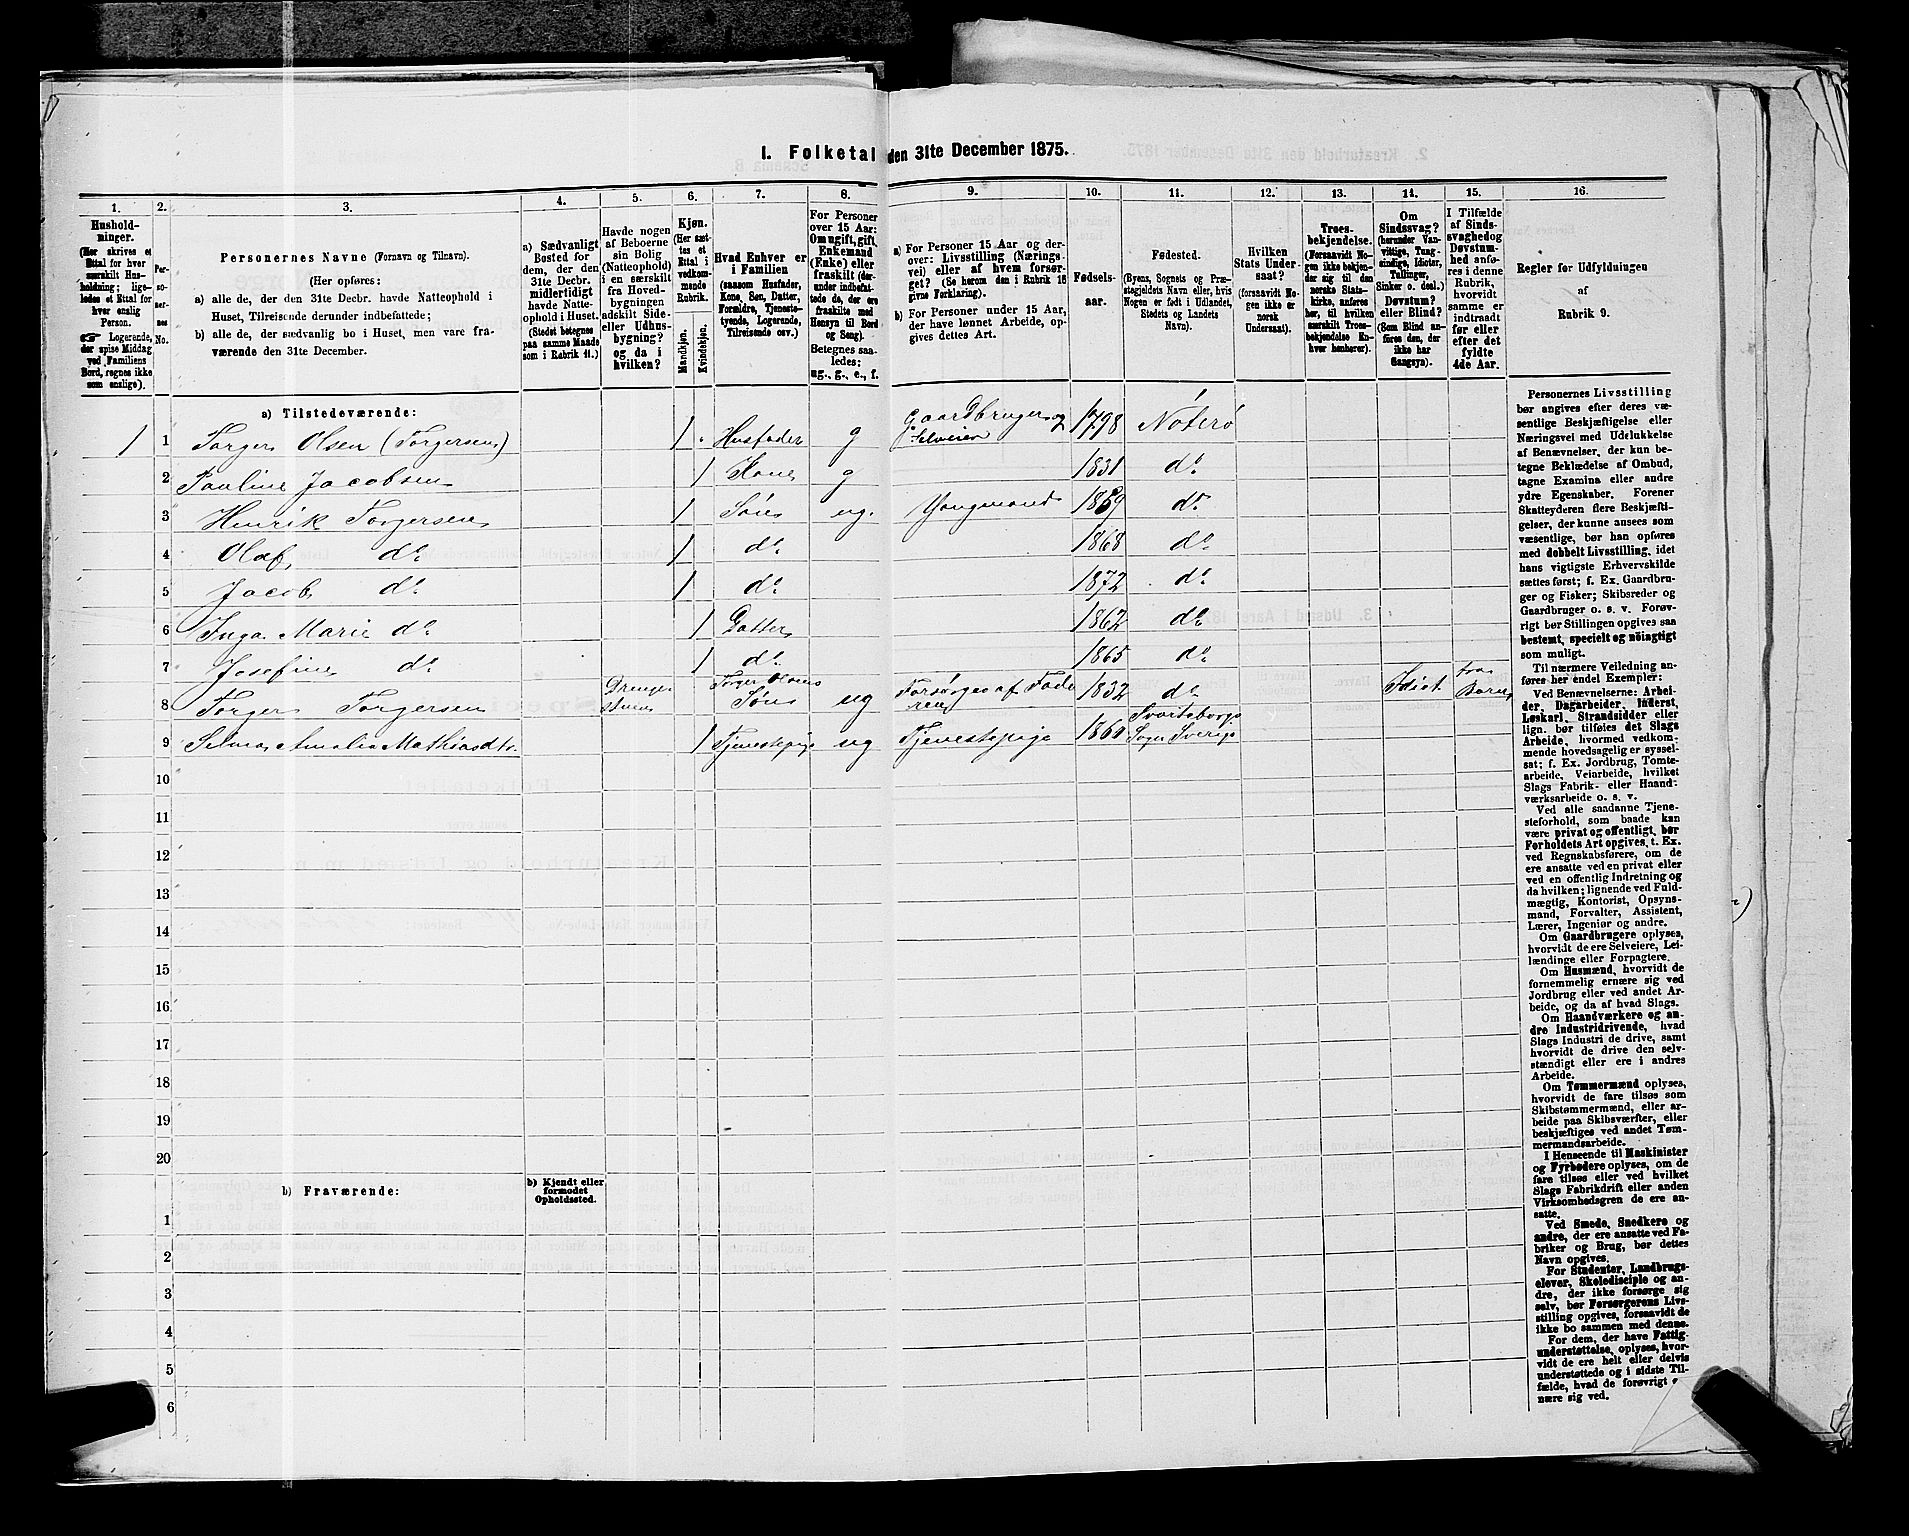 I. Folketal den 31te December 1875.
1.
2.
3.
4.
5.
6.
7.
8.
9.
10.
11.
12.
13.
14.
15.
16.
Hushold-
ninger.
(Her skrives et
Ettal for hver
særskilt Hus-
holdning; lige-
ledes et Ettal for
hver enslig
Person.
☞ Logerende,
der spise Middag
ved Familiens
Bord, regnes ikke
som enslige).
Per-
so-
ner-
nes
No.
Personernes Navne (Fornavn og Tilnavn).
(Her opføres:
a) alle de, der den 31te Decbr. havde Natteophold i
Huset, Tilreisende derunder indbefattede;
b) alle de, der sædvanlig bo i Huset, men vare fra-
værende den 31te December.
a) Sædvanligt
Bosted for
dem, der den
31te Decbr.
midlertidigt
havde Natte-
ophold i Huset.
(Stedet betegnes
paa samme Maade
som i Rubrik 11.)
Havde nogen
af Beboerne
sin Bolig
(Natteophold)
i en særskilt
fra Hoved-
bygningen
adskilt Side-
eller Udhus-
bygning?
og da i
hvilken?
Kjøn.
(Her sæt-
tes et
Ettal i
vedkom-
mende
Rubrik.
Mandkjøn.
Kvindekjøn.
Hvad Enhver er
i Familien
(saasom Husfader,
Kone, Søn, Datter,
Forældre, Tjeneste-
tyende, Logerende,
Tilreisende osv.)
For Personer
over 15 Aar:
Om ugift, gift,
Enkemand
(Enke) eller
fraskilt (der-
under indbefat-
tede de, der ere
fraskilte med
Hensyn til Bord
og Seng).
Betegnes saa-
ledes:
ug., g., e., f.
a) For Personer 15 Aar og der-
over: Livsstilling (Nærings-
vei) eller af hvem forsør-
get? (Se herom den i Rubrik 16
givne Forklaring).
b) For Personer under 15 Aar,
der have lønnet Arbeide, op-
gives dettes Art.
Fødsels-
aar.
Fødested.
(Byens, Sognets og Præ-
stegjeldets Navn eller, hvis
Nogen er født i Udlandet,
Stedets og Landets
Navn).
Hvilken
Stats Under-
saat?
(forsaavidt No-
gen ikke er
norsk
Undersaat).
Troes-
bekjendelse.
(Forsaavidt No-
gen ikke bekjen-
der sig til den
norske Stats-
kirke, anføres
her, til hvilken
særskilt Troes-
bekjendelse En-
hver henhører).
Om
Sindssvag?
(herunder Van-
vittige, Tung-
sindige, Idioter,
Tullinger,
Sinker o. desl.)
Døvstum?
eller Blind?
(Som Blind an-
føres den, der
ikke har
Gangsyn).
I Tilfælde
af Sinds-
svaghed og
Døvstum-
hed anfø-
res i denne
Rubrik,
hvorvidt
samme er
indtraadt
før eller
efter det
fyldte
4de Aar.
Regler for Udfyldningen
af
Rubrik 9.
a) Tilstedeværende:
1 1 Torger Olsen (Torgersen) 1 Husfader g Gaardbruger og Selveier 1798 Nøterø
2 Pauline Jacobsen 1 Kone g 1831 do
3 Henrik Torgersen 1 Søn ug. 1859 do
4 Olaf do 1 do 1868 do
5 Jacob do 1 do 1872 do
6 Inga Marie do 1 Datter 1862 do
7 Josefine do 1 do 1865 do
8 Torger Torgersen Drenge stuen Torger Olsens Søn ug Forsørges af Fade ren 1832 do Idiot fra Barn
9 Selma Amalia Mathiasdtr. 1 Tjenestepige ug Tjenestepige 1860 Svarteborgs Sogn Sverige
10
11
12
13
14
15
16
17
18
19
20
b) Fraværende:
b) Kjendt eller
formodet
Opholdssted.
1
2
3
4
5
6
Personernes Livsstilling
bør angives efter deres væ-
sentlige Beskjæftigelse eller
Næringsvei med Udelukkelse
af Benævnelser, der kun be-
tegne Beklædelse af Ombud,
tagne Examina eller andre
ydre Egenskaber. Forener
Skatteyderen flere Beskjæfti-
gelser, der kunne ansees som
væsentlige, bør han opføres
med dobbelt Livsstilling, idet
hans vigtigste Erhvervskilde
sættes først; f. Ex. Gaardbru-
ger og Fisker; Skibsreder og
Gaardbruger o. s. v. Forøv-
rigt bør Stillingen opgives saa
bestemt, specielt og nöiagtigt
som muligt.
Til nærmere Veiledning an-
føres her endel Exempler:
Ved Benævnelserne: Arbei-
der, Dagarbeider, Inderst,
Løskarl, Strandsidder eller
lign. bør tilføies det Slags
Arbeide, hvormed vedkom-
mende hovedsagelig er syssel-
sat; f. Ex. Jordbrug, Tomte-
arbeide, Veiarbeide, hvilket
Slags Fabrik- eller Haand-
værksarbeide o. s. v.
Ved alle saadanne Tjene-
steforhold, som baade kan
være privat og offentligt, bør
Forholdets Art opgives, t. Ex.
ved Regnskabsførere, om de
ere ansatte ved en privat eller
ved en offentlig Indretning og
da hvilken; lignende ved Fuld-
mægtig, Kontorist, Opsyns-
mand, Forvalter, Assistent,
Lærer, Ingeniør og andre.
Om Gaardbrugere oplyses,
hvorvidt de ere Selveiere, Lei-
lændinge eller Forpagtere.
Om Husmænd, hvorvidt de
fornemmelig ernære sig ved
Jordbrug eller ved andet Ar-
beide, og da af hvad Slags.
Om Haandværkere og an-
dre Industridrivende, hvad
Slags Industri de drive, samt
hvorvidt de drive den selv-
stændigt eller ere i andres
Arbeide.
Om Tømmermænd oplyses,
hvorvidt de fare tilsøs som
Skibstømmermænd, eller ar-
beide paa Skibsværfter, eller
beskjæftiges ved andet Tøm-
mermandsarbeide.
I Henseende til Maskinister
og Fyrbødere oplyses, om de
fare tilsøs eller ved hvilket
Slags Fabrikdrift eller anden
Virksomhedsgren de ere an-
satte.
Ved Smede, Snedkere og
andre, der ere ansatte ved Fa-
briker og Brug, bør dettes
Navn opgives.
For Studenter, Landbrugs-
elever, Skoledisciple og an-
dre, der ikke forsørge sig
selv, bør Forsørgerens Livs-
stilling opgives, forsaavidt de
ikke bo sammen med denne.
For dem, der have Fattig-
understøttelse, oplyses, hvor-
vidt de ere helt eller delvis
understøttede og i sidste Til-
fælde, hvad de forøvrigt er-
nære sig ved.